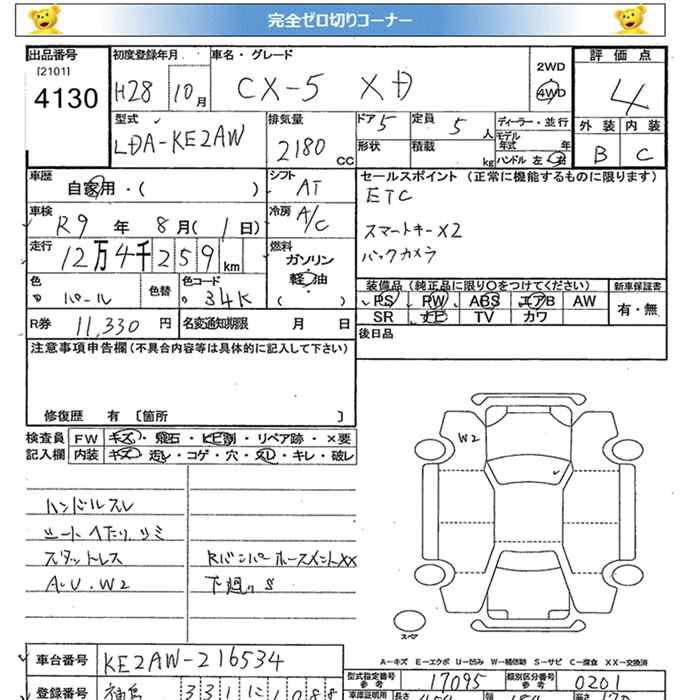 完全ゼロ切りコーナー
出品番号 [2101] 4130
初度登録年月 H28 10月
車名・グレード CX-5 XD
2WD 4WD
評価点 4
外装 内装
B C
型式 LDA-KE2AW
排気量 2180 CC
ドア 5 定員 5人
ディーラー・並行
モデル年式 年
形状 積載 kg ハンドル 左・右
車歴 自家用・( )
シフト AT
セールスポイント (正常に機能するものに限ります)
ETC
スマートキーX2
バックカメラ
車検 R9年 8月(1日)
冷房 A/C
走行 12万4千259km
燃料 ガソリン 軽油 ( )
色 パール 色替 色コード 34K
装備品 (純正品に限り○をつけてください) 新車保証書
PS PW ABS エアB AW 有・無
SR ナビ TV カワ
R券 11,330円 名変通知期限 月 日
後日品
注意事項申告欄(不具合内容等は具体的に記入して下さい)
修復歴 有 〔箇所 〕
検査員 FW キズ・飛石・ヒビ割・リペア跡・×要
記入欄 内装 キズ・汚レ・コゲ・穴・スレ・キレ・破レ
W2
ハンドルスレ
シートヘたり、シミ
スタットレス
A・U・W2
Rバンパーホースメント××
下廻りS
スペア
A―キズ E―エクボ U―凹み W―補修跡 S―サビ C―腐食 XX―交換済
車台番号 KE2AW-216534
型式指定番号 参考 17095 類別区分番号 参考 0201
登録番号 福島 331
車庫証明用 参考 長さ 幅 高さ